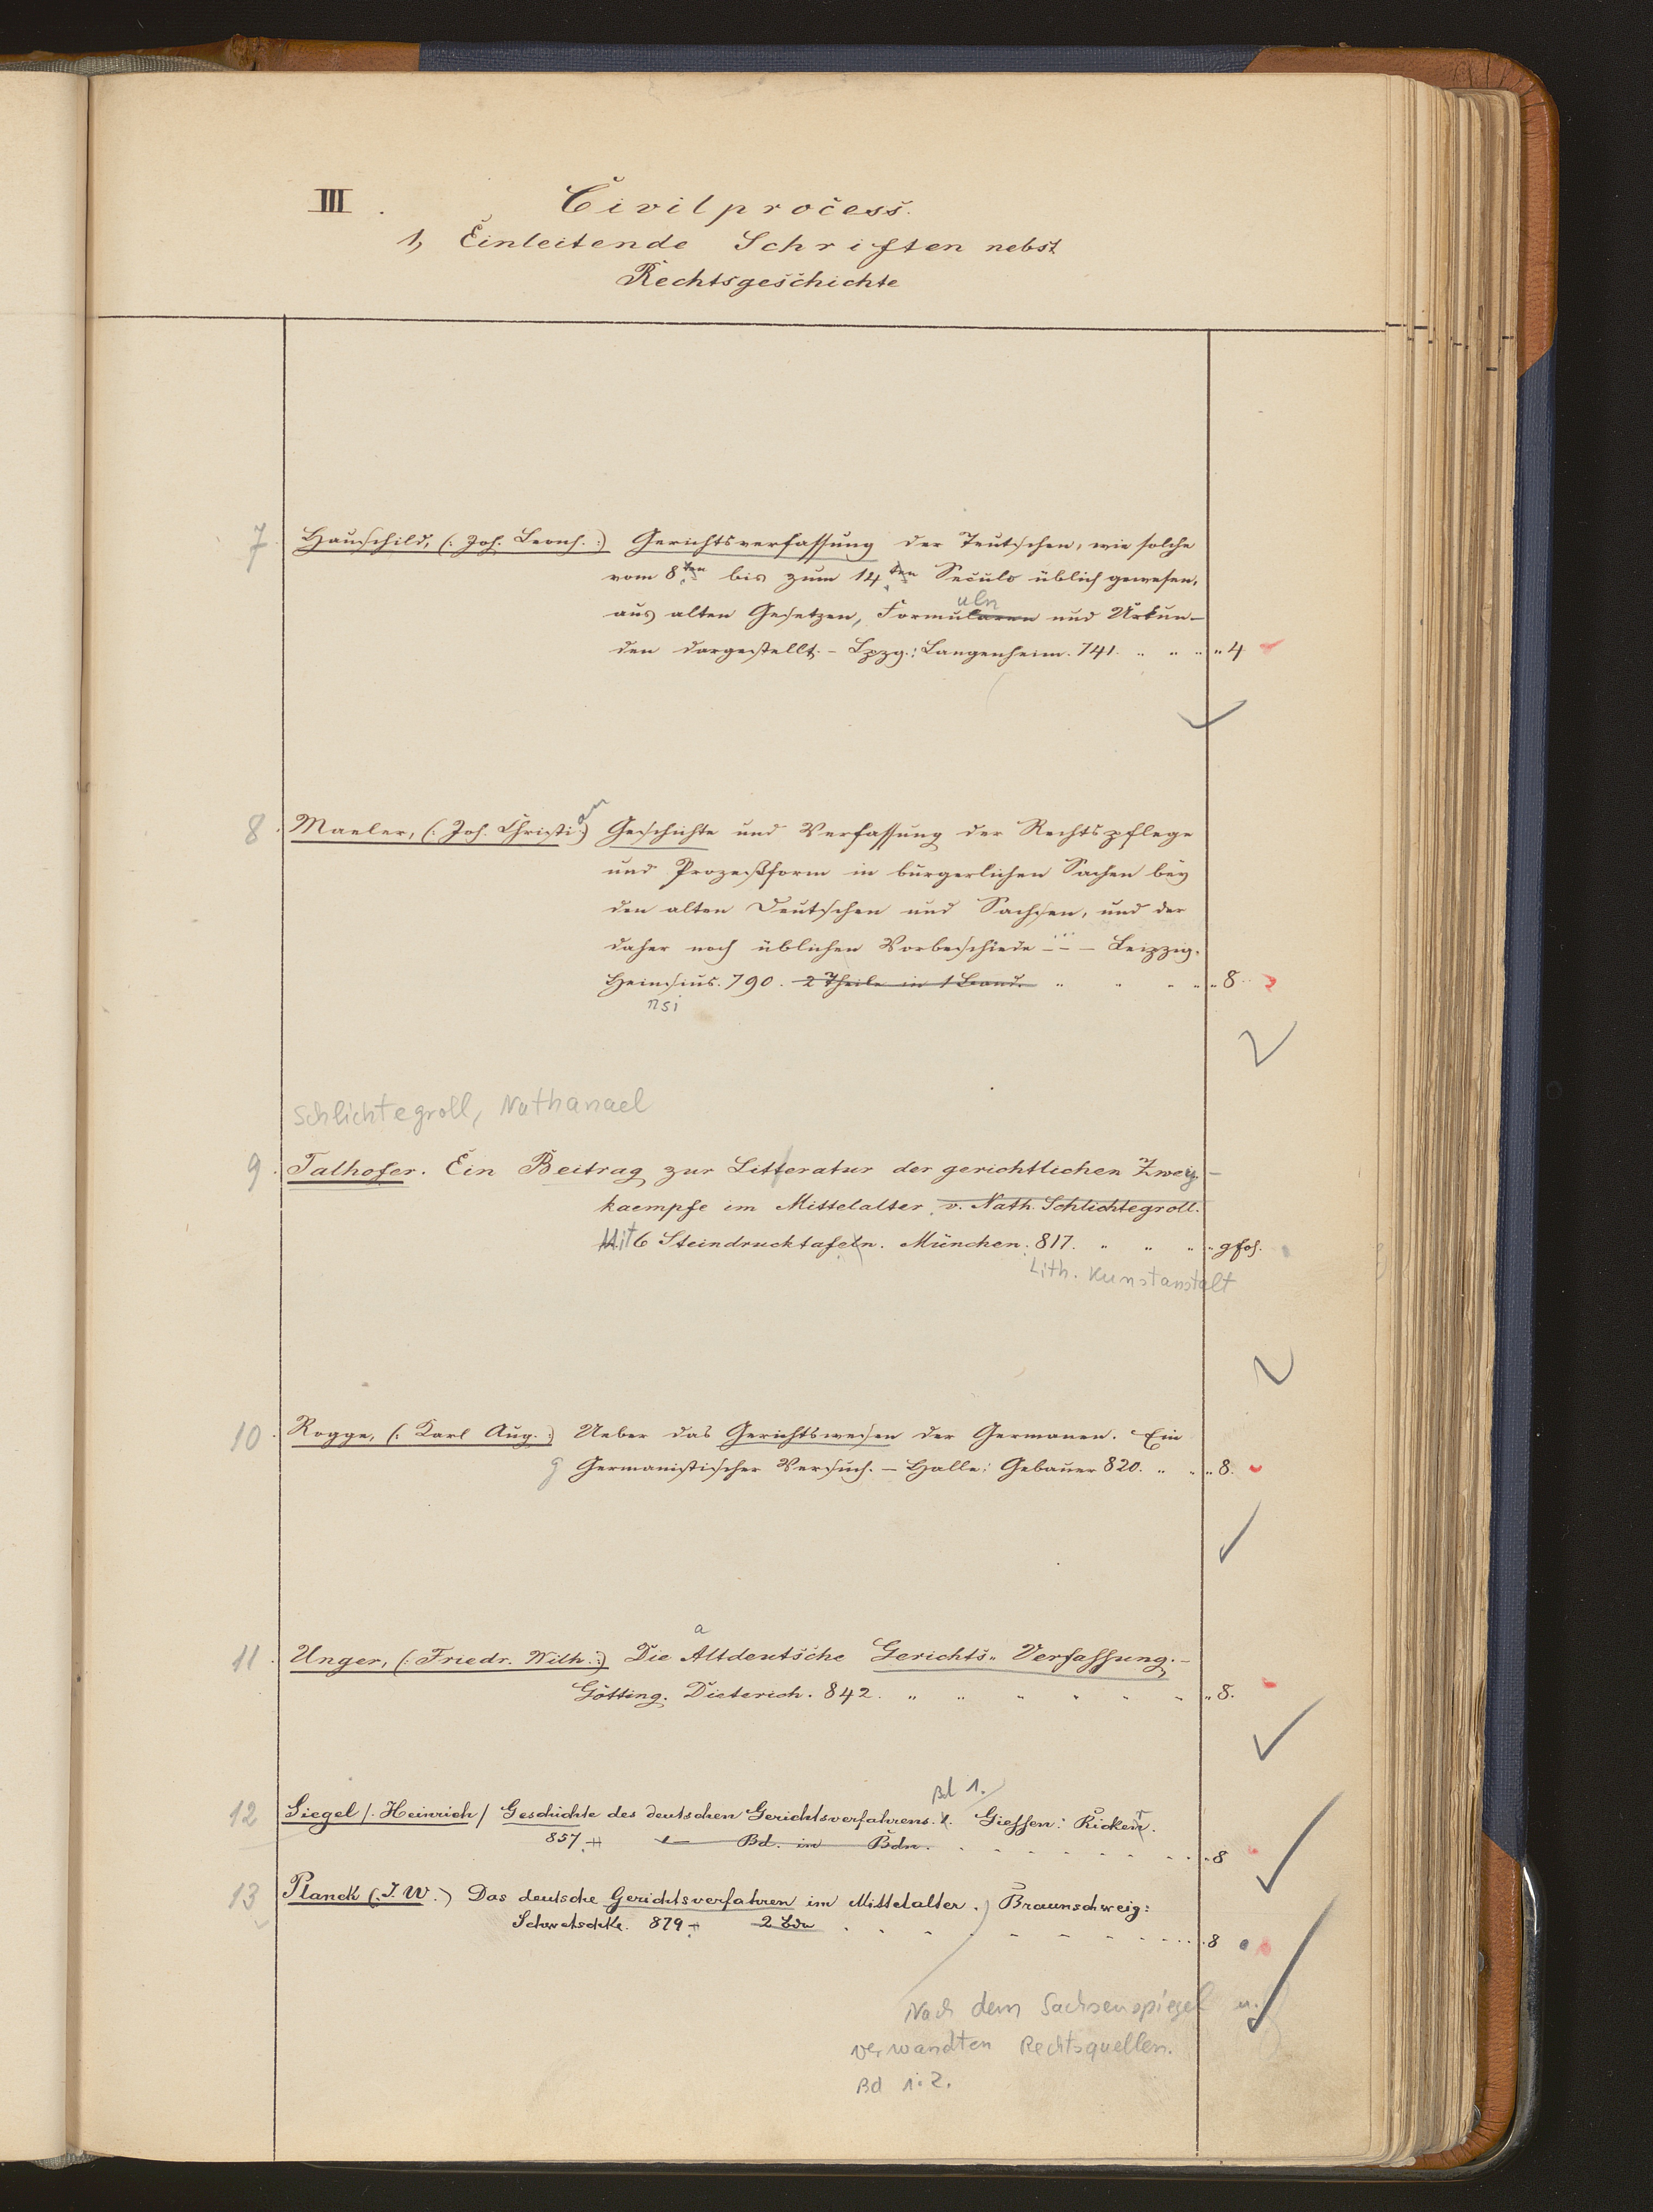 III. Civilprocess.
1, Einleitende Schriften nebst
Rechtsgeschichte
7 Hauschild, (: Joh. Leonh. :) Gerichtsverfassung der Teutschen, wie solche
vom 8ten bis zum 14ten Seculo üblich gewesen,
uln
aus alten Gesetzen, Formularen und Urkun-
den dargestellt. - Lpzg.: Langenheim. 741. " " " " 4
8. Maeler, (: Joh. Christian :) Geschichte und Verfassung der Rechtspflege
und Prozeßform in bürgerlichen Sachen bey
den alten Deutschen und Sachsen, und der
daher noch üblichen Vorbeschiede - - - Leipzig.
Heinsius. 790. 2 Theile in 1 Band. " " " " " 8.
nsi
Schlichtegroll, Nathanael
9. Talhofer. Ein Beitrag zur Litteratur der gerichtlichen Zwey-
kaempfe im Mittelalter, v. Nath. Schlichtegroll.
Mit 6 Steindrucktafeln. München: 817. " " " " gfol.
Lith. Kunstanstalt
10. Rogge, (: Karl Aug. :) Ueber das Gerichtswesen der Germanen. Ein
g Germanistischer Versuch. - Halle: Gebauer 820. " " " 8.
a
11. Unger, (: Friedr. Wilh. :) Die Altdeutsche Gerichts-Verfassung. -
Götting. Dieterich. 842. " " " " " " " 8.
Bd 1.
12 Siegel /. Heinrich / Geschichte des deutschen Gerichtsverfahrens. Giessen: Ricker.
857. Bd. in Bdn. . . . . . . . . 8
13 Planck (. J. W.) Das deutsche Gerichtsverfahren im Mittelalter. Braunschweig:
Schwetschke. 879 2 Bde . . . . . . . . . 8
Nach dem Sachsenspiegel u.
verwandten Rechtsquellen.
Bd 1. 2.